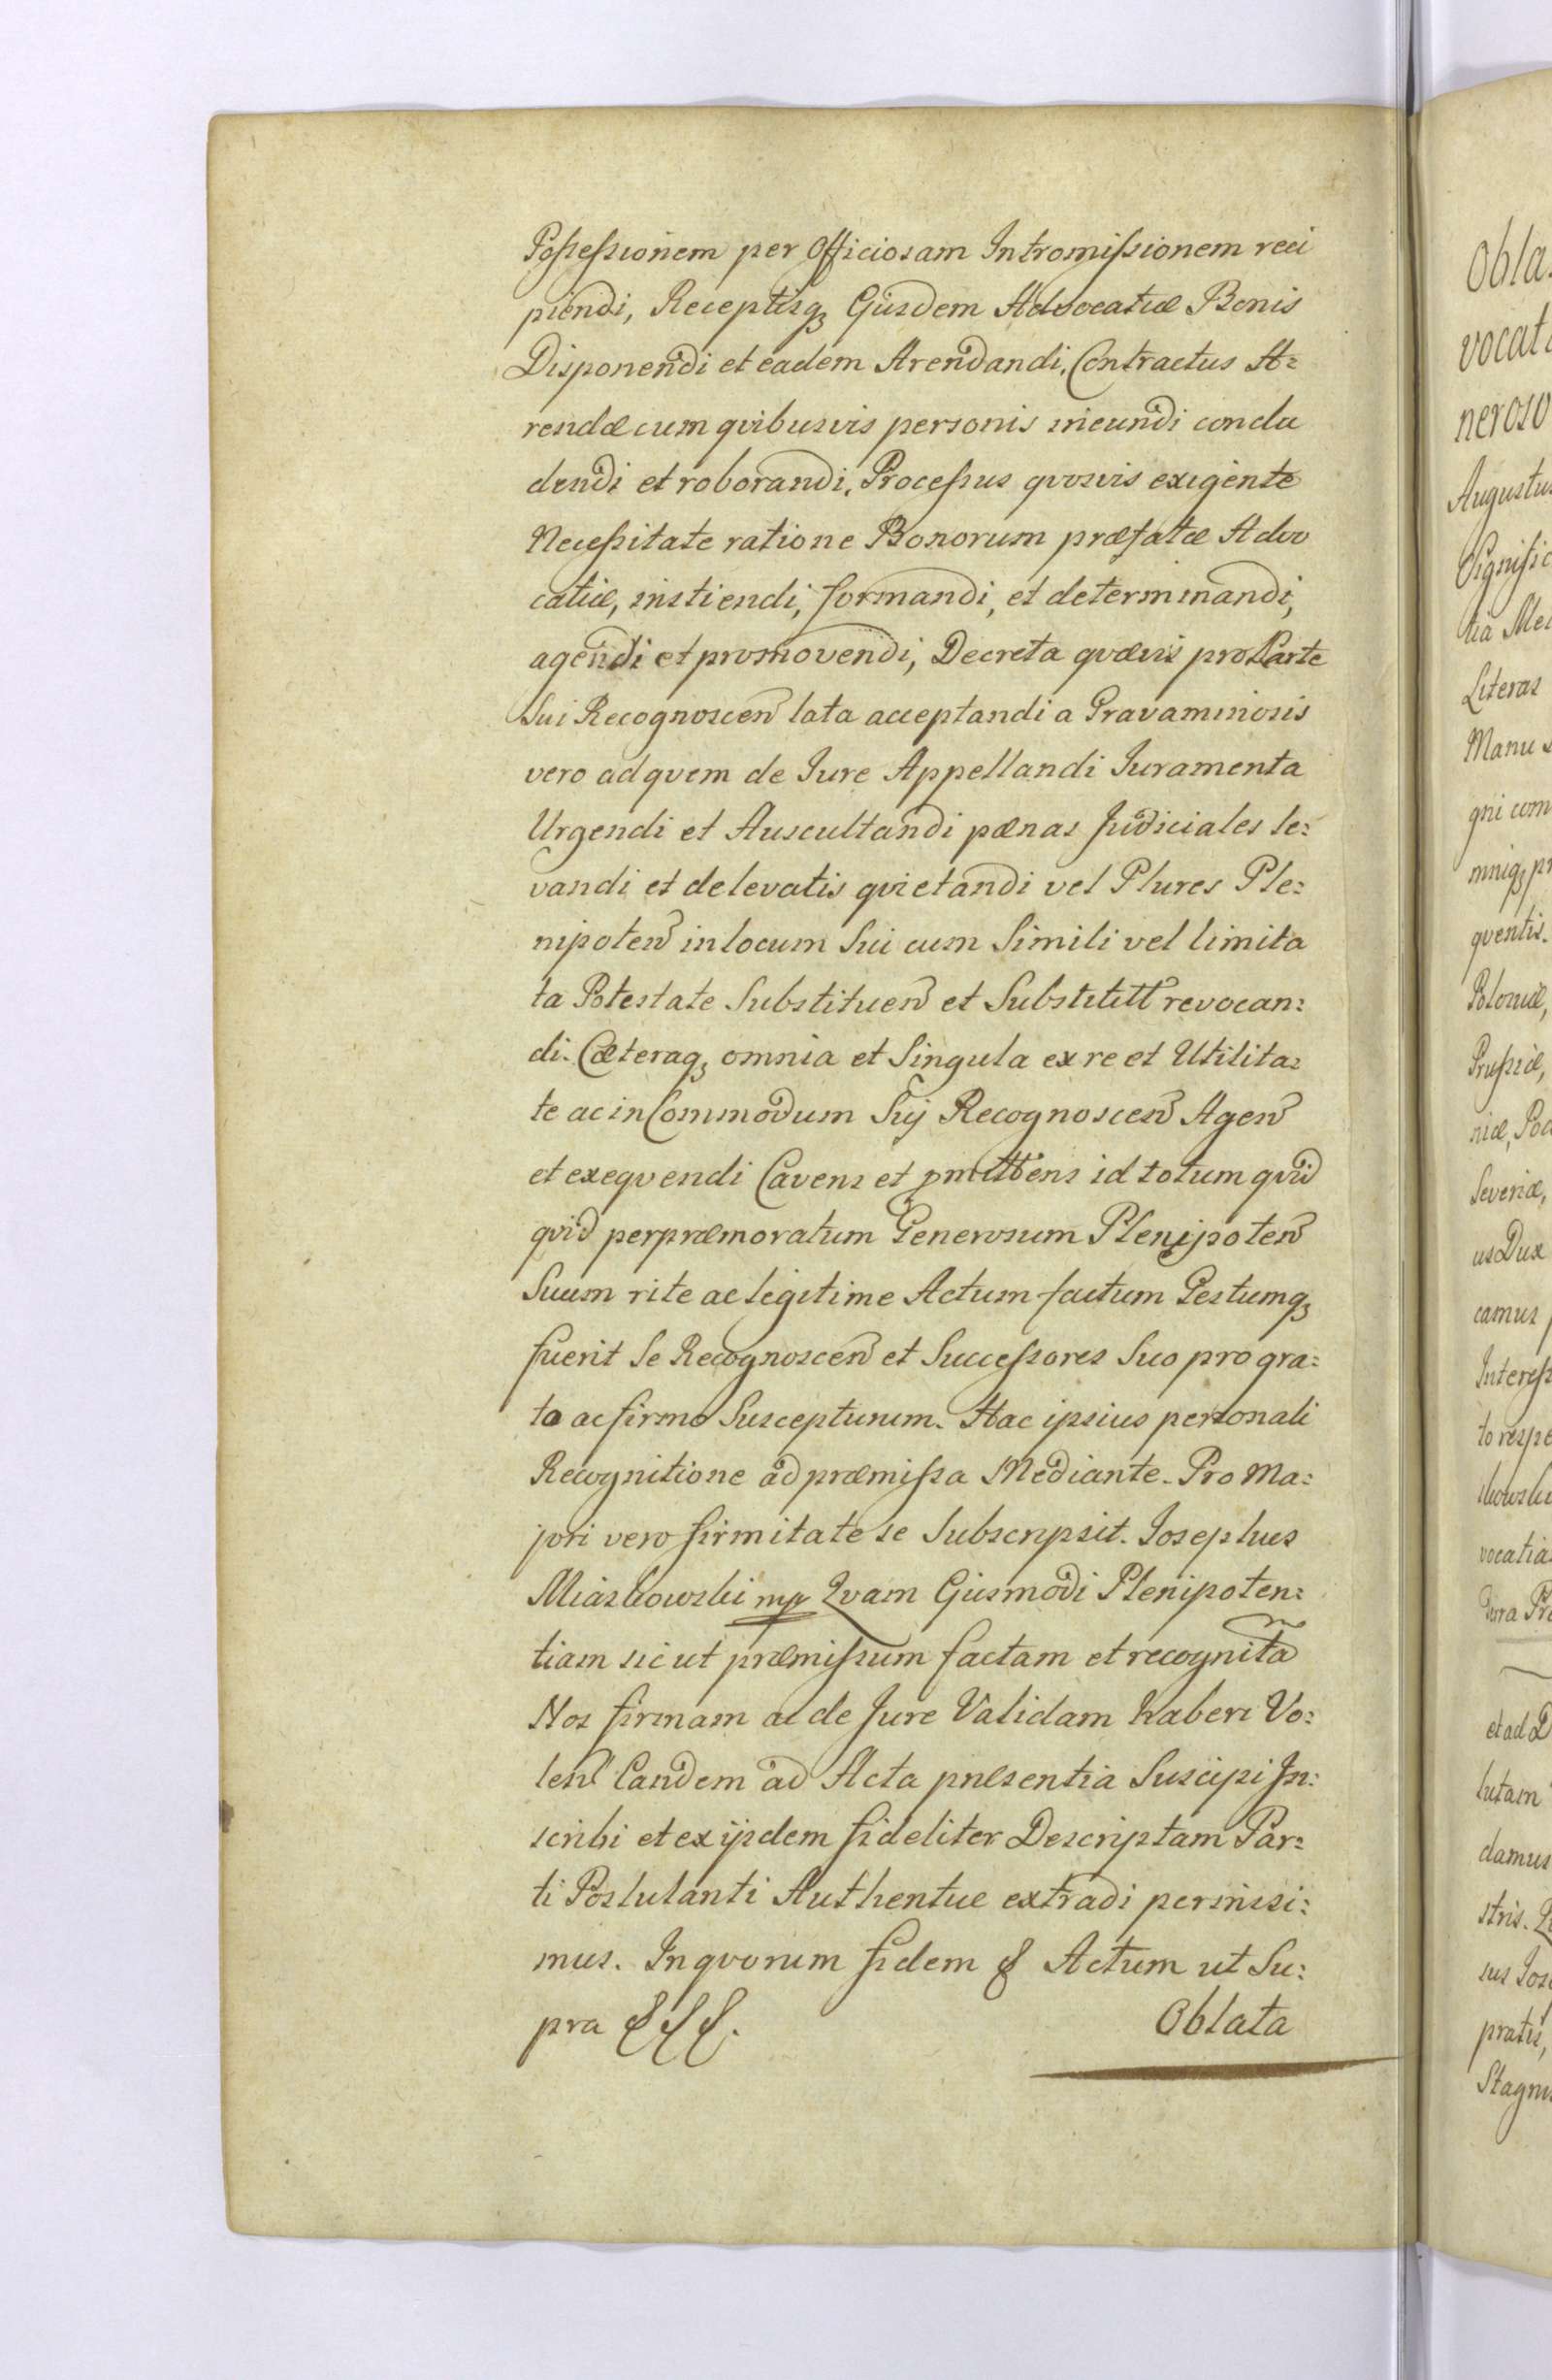 Possessionem per Officiosam Intromissionem reci
piendi, Receptisq3 Ejusdem Advocatiæ Bonis
Disponendi et eadem Arendandi, Contractus A=
rendæ cum qvibusvis personis ineundi conclu
dendi et roborandi, Processus qvosvis exigente
Necessitate ratione Bonorum præfatæ Advo
catiæ, instiendi, formandi, et determinandi,
agendi et promovendi, Decreta qvævis pro Parte
Sui Recognoscen lata acceptandi a Gravaminosis
vero ad qvem de Jure Appellandi Juramenta
Urgendi et Auscultandi pænas Judiciales le=
vandi et de levatis qvietandi vel Plures Ple=
nipoten in locum Sui cum Simili vel limita
ta Potestate Substituen et Substitutt revocan=
di. Cæteraq3 omnia et Singula ex re et Utilita=
te ac in Commodum Sij Recognoscen Agen
et exeqvendi Cavens et pmittens id totum qvid
qvid per præmoratum Generosum Plenipoten
Suum rite ac legitime Actum factum Gestumq3
fuerit Se Recognoscen et Successores Suo pro gra=
to ac firmo Suscepturum. Hac ipsius personali
Recognitione ad præmissa Mediante. Pro Ma=
jori vero firmitate se Subscripsit. Josephus
Miaskowski mp Qvam Ejusmodi Plenipoten=
tiam sic ut præmissum factam et recognita
Nos firmam ac de Jure Validam haberi Vo=
len Eandem ad Acta præsentia Suscipi In=
scribi et ex ijsdem fideliter Descriptam Par=
ti Postulanti Authentice extradi permisi=
mus. In qvorum fidem & Actum ut Su=
pra &&&.
Oblata
Obla
vocat
neroso
Augustus
Significa
tia Me
Literas
Manu
gni com
mniq3 pr
qventis.
Poloniæ,
Prussiæ,
niæ, Pod
Severiæ,
us Dux
camus
Interess
to respe
kowski
vocatia
Jura
et ad D
lutam
damus
stris.
sus Jos
pratis,
Stagni